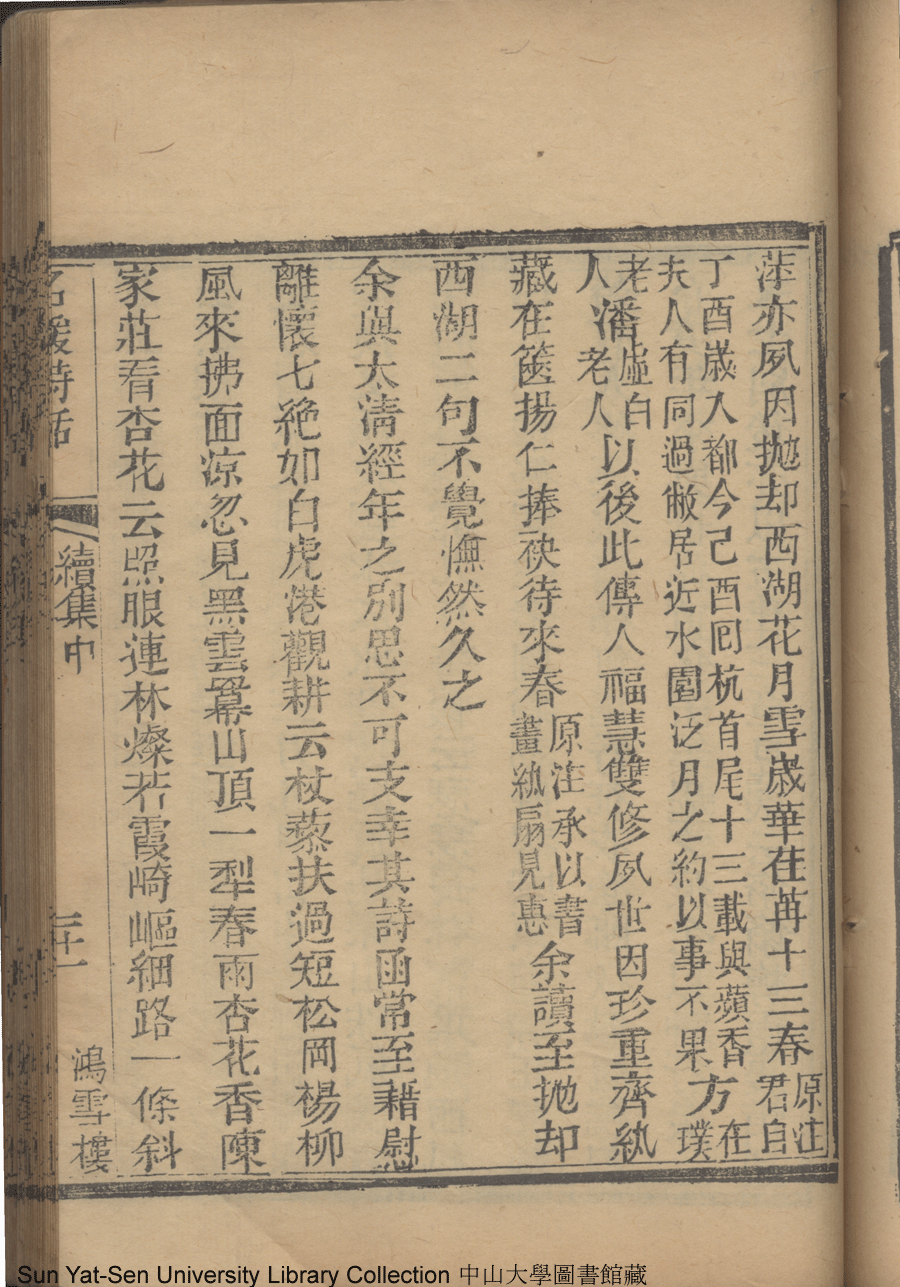 萍亦夙因抛却西湖花月雪歲華荏苒十三春原注君自
丁酉歲入都今己酉囘杭首尾十三載與蘋香夫人有同過敝居近水園泛月之約以事不果方在璞
老人潘虛白老人以後此傳人福慧雙修夙世因珍重齊紈
藏在篋揚仁捧袂待來春原注承以書畫紈扇見惠余讀至抛却
西湖二句不覺憮然久之
余與太清經年之別思不可支幸其詩函常至藉慰
離懷七絶如白虎港觀耕云杖藜扶過短松岡楊柳
風來拂面凉忽見黑雲羃山頂一犁春雨杏花香陳
家莊看杏花云照眼連林燦若霞崎嶇細路一條斜
名媛詩話 續集中 三十一 鴻雪樓
Sun Yat-Sen University Library Collection 中山大學圖書館藏